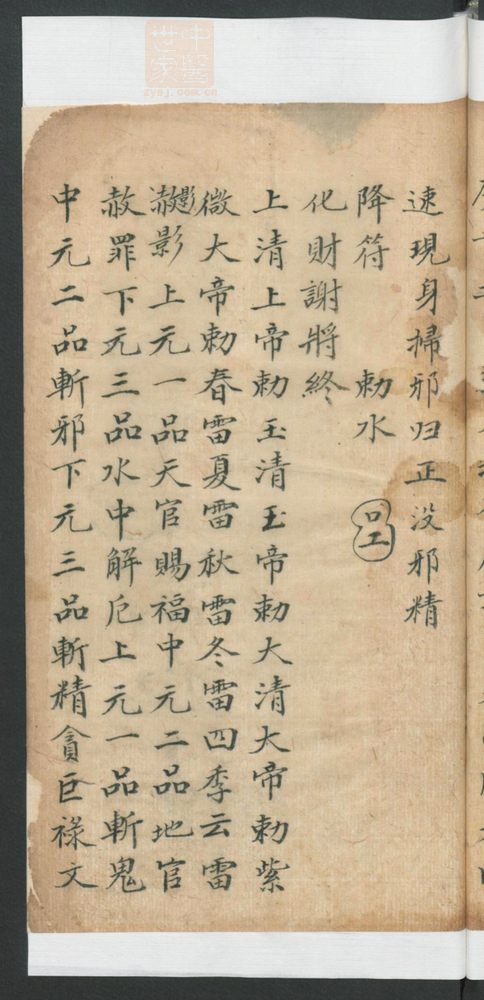 速現身掃邪归正没邪精
降符 勅水 口工
化財謝將終
上清上帝勅玉清玉帝勅大清大帝勅紫
微大帝勅春雷夏雷秋雷冬雷四季云雷
赦影上元一品天官賜福中元二品地官
赦罪下元三品水中解厄上元一品斬鬼
中元二品斬邪下元三品斬精貪巨禄文
中醫世家
zysj.com.cn